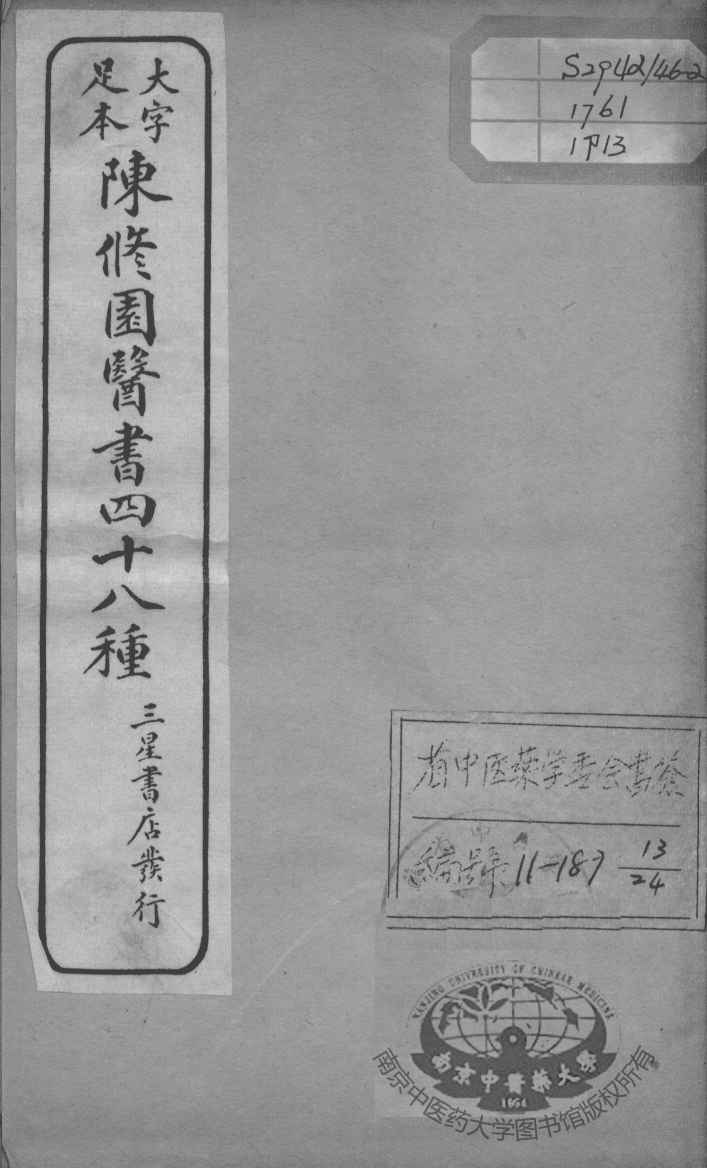 大字
足本
陳修園醫書四十八種
三星書店發行
S2942/46-2
1761
1下13
省中医葯学委会書簽
編號 11-187 13/24
NANJING UNIVERSITY OF CHINESE MEDICINE
南京中醫藥大學
1954
南京中医药大学图书馆版权所有